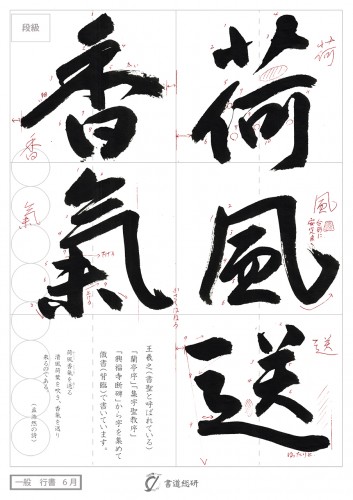 段級
荷風送
香氣
荷
風
送
香
氣
王羲之(書聖と呼ばれている)
「蘭亭序」「集字聖教序」
「興福寺断碑」から字を集めて
倣書(背臨)で書いています。
荷風香氣を送る
清風荷葉を吹き、香氣を送り
来るのである。
(孟浩然の詩)
一般 行書 6月
書道総研